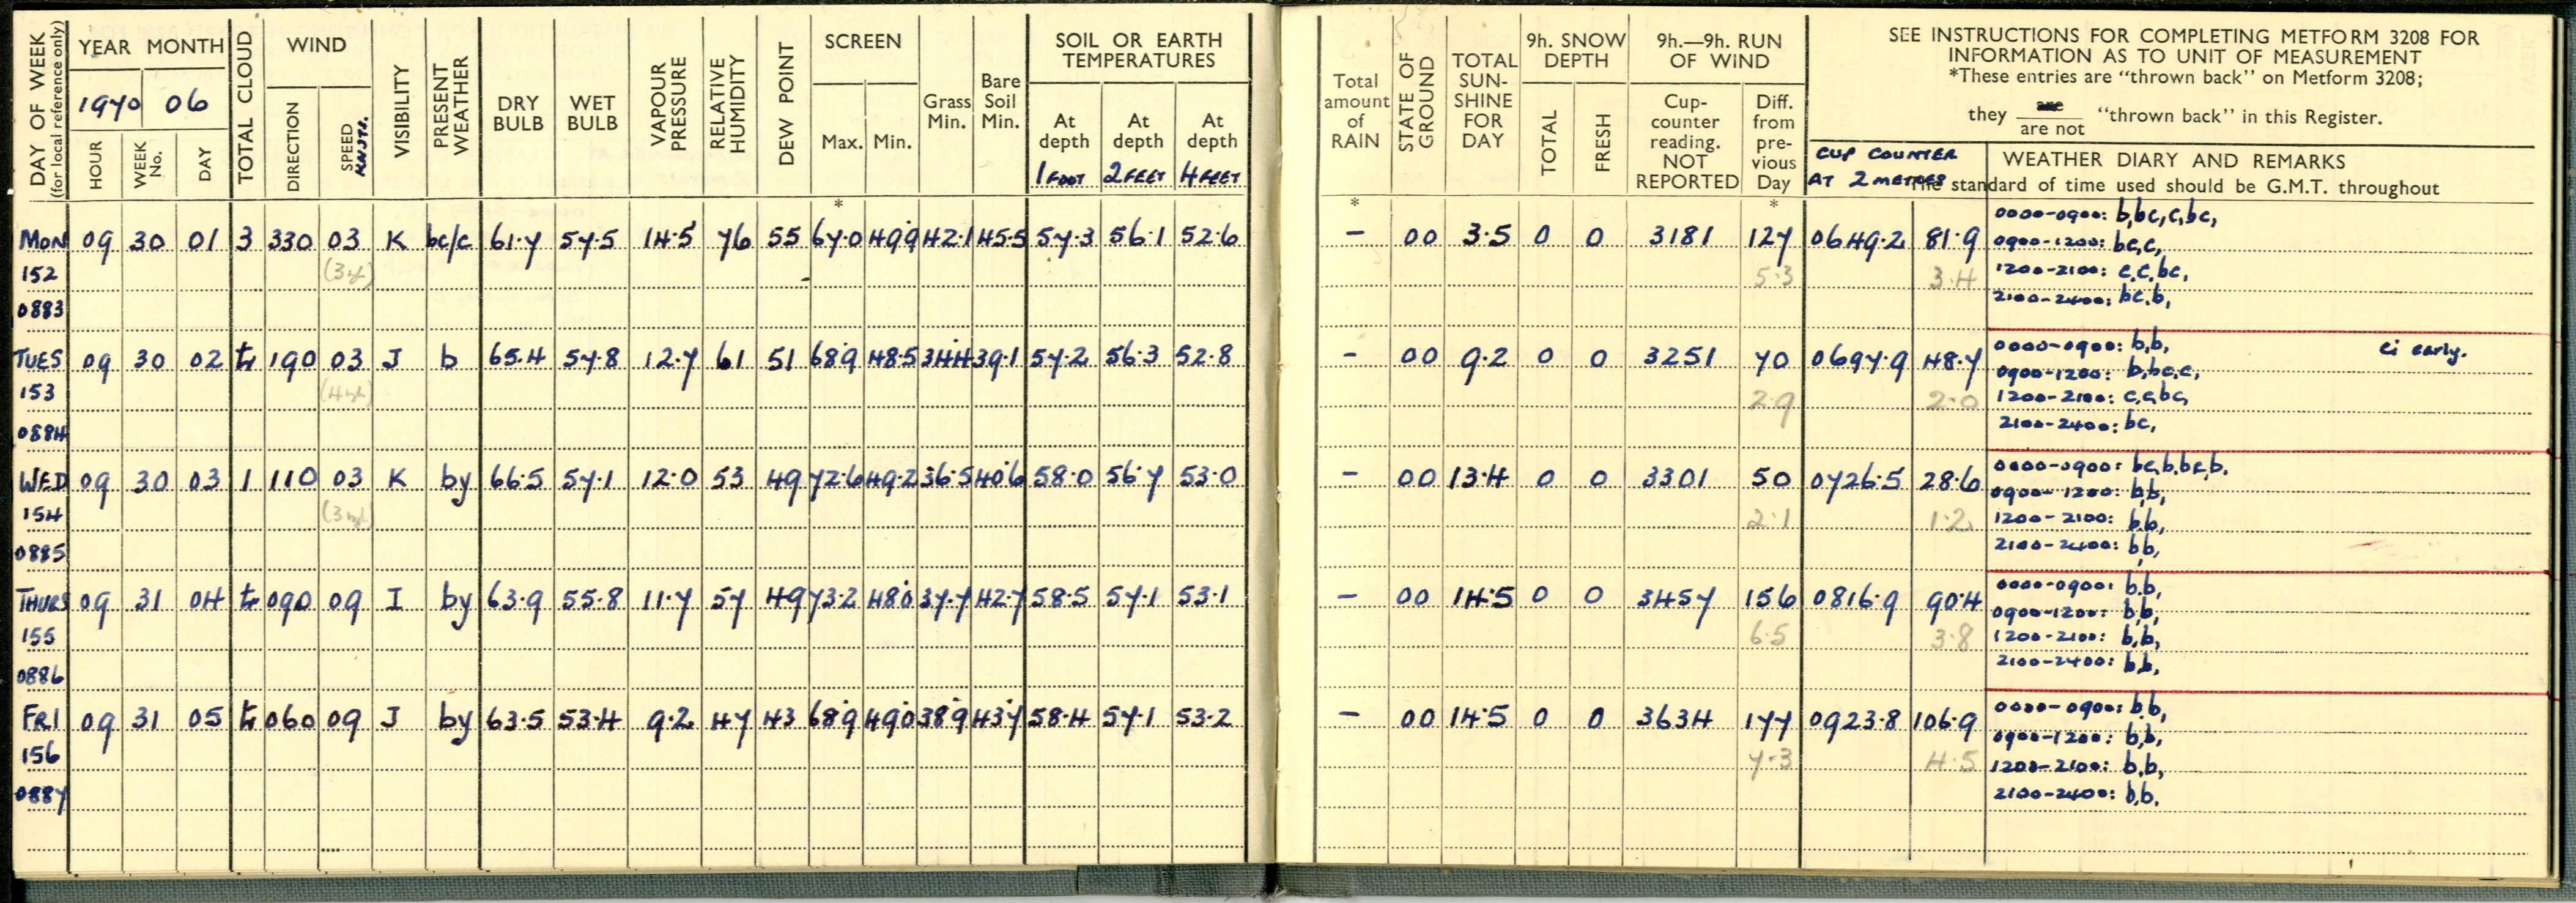 DAY OF WEEK
(for local reference only)
YEAR MONTH
1970 06
HOUR
WEEK No.
DAY
TOTAL CLOUD
WIND
DIRECTION
SPEED KNOTS.
VISIBILITY
PRESENT WEATHER
DRY BULB
WET BULB
VAPOUR PRESSURE
RELATIVE HUMIDITY
DEW POINT
SCREEN
Max. Min.
*
Grass Min.
Bare Soil Min.
SOIL OR EARTH TEMPERATURES
At depth 1 FOOT
At depth 2 FEET
At depth 4 FEET
Total amount of RAIN
*
STATE OF GROUND
TOTAL SUN-SHINE FOR DAY
9h. SNOW DEPTH
TOTAL
FRESH
9h.—9h. RUN OF WIND
Cup-counter reading. NOT REPORTED
Diff. from pre-vious Day
*
SEE INSTRUCTIONS FOR COMPLETING METFORM 3208 FOR
INFORMATION AS TO UNIT OF MEASUREMENT
*These entries are "thrown back" on Metform 3208;
they are / are not "thrown back" in this Register.
CUP COUNTER
AT 2 METRES
WEATHER DIARY AND REMARKS
The standard of time used should be G.M.T. throughout
MON 09 30 01 3 330 03 K bc/c 61.7 57.5 14.5 76 55 67.0 49.9 42.1 45.5 57.3 56.1 52.6 – 00 3.5 0 0 3181 127 0649.2 81.9
152 5.3 3.4
0883
0000-0900: b,bc,c,bc,
0900-1200: bc,c,
1200-2100: c,c,bc,
2100-2400: bc,b,
TUES 09 30 02 tr 190 03 J b 65.4 57.8 12.7 61 51 68.9 48.5 34.4 39.1 57.2 56.3 52.8 – 00 9.2 0 0 3251 70 0697.9 48.7
153 2.9 2.0
0884
0000-0900: b,b, Ci early.
0900-1200: b,bc,c,
1200-2100: c,c,bc,
2100-2400: bc,
WED 09 30 03 1 110 03 K by 66.5 57.1 12.0 53 49 72.6 49.2 36.5 40.6 58.0 56.7 53.0 – 00 13.4 0 0 3301 50 0726.5 28.6
154 2.1 1.2
0885
0000-0900: bc,b,bc,b,
0900-1200: b,b,
1200-2100: b,b,
2100-2400: b,b,
THURS 09 31 04 tr 090 09 I by 63.9 55.8 11.7 57 49 73.2 48.0 37.7 42.7 58.5 57.1 53.1 – 00 14.5 0 0 3457 156 0816.9 90.4
155 6.5 3.8
0886
0000-0900: b,b,
0900-1200: b,b,
1200-2100: b,b,
2100-2400: b,b,
FRI 09 31 05 tr 060 09 J by 63.5 53.4 9.2 47 43 68.9 49.0 38.9 43.7 58.4 57.1 53.2 – 00 14.5 0 0 3634 177 0923.8 106.9
156 7.3 4.5
0887
0000-0900: b,b,
0900-1200: b,b,
1200-2100: b,b,
2100-2400: b,b.